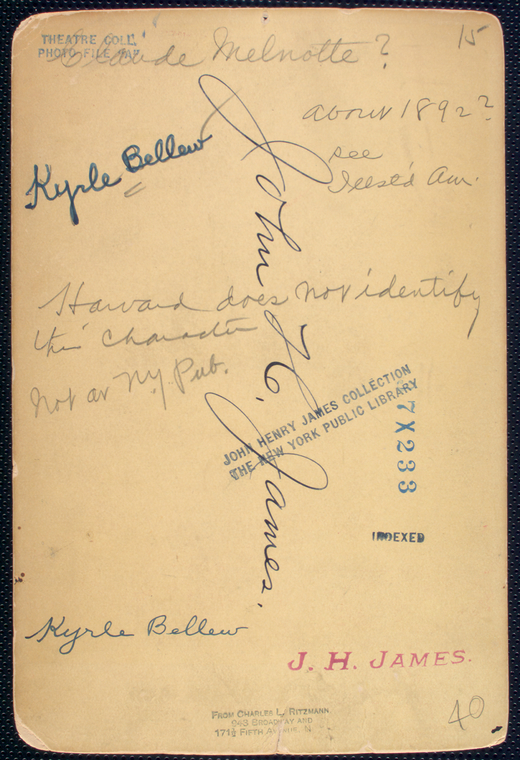 THEATRE COLL.
PHOTO FILE
Claude Melnotte?
15
about 1892?
see
Am.
Kyrle Bellew
John H. James.
Harvard does not identify
this character
Not at N.Y. Pub.
JOHN HENRY JAMES COLLECTION
THE NEW YORK PUBLIC LIBRARY
7X233
INDEXED
Kyrle Bellew
J. H. JAMES.
FROM CHARLES L. RITZMANN,
943 BROADWAY AND
171½ FIFTH
40